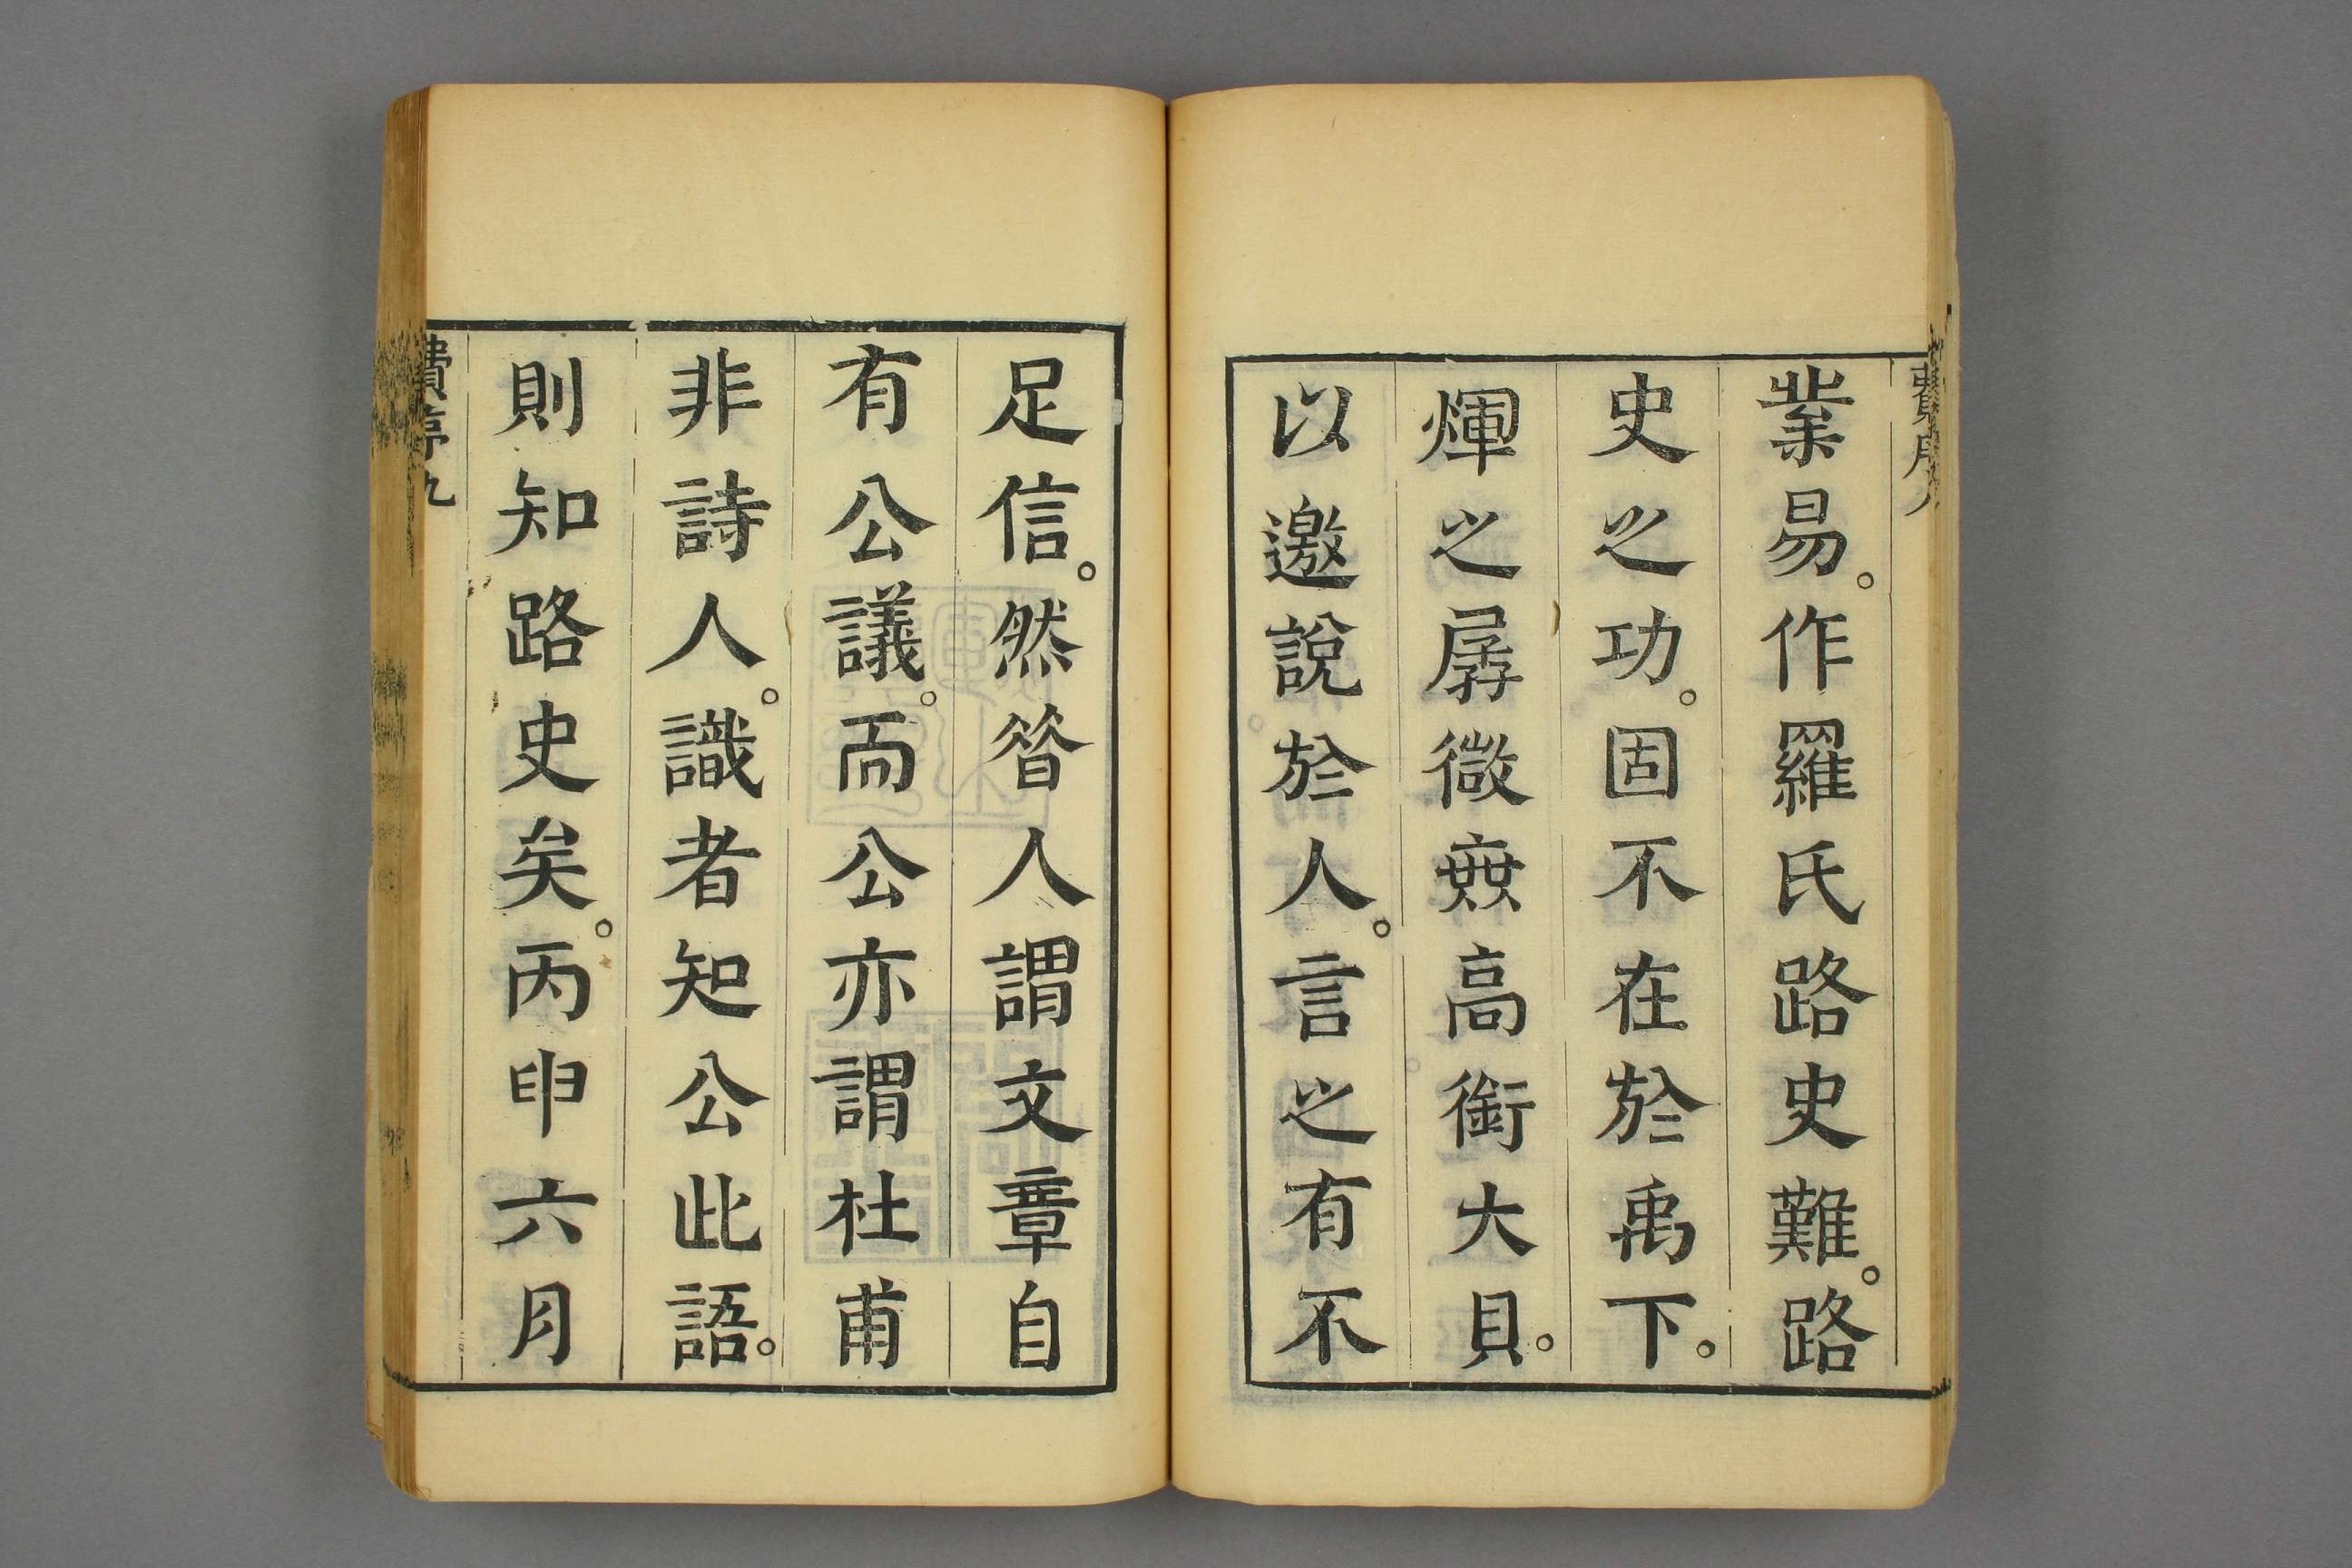 業易。作羅氏路史難。路
史之功。固不在於禹下。
煇之孱微庶高銜大貝。
以邀說於人。言之有不
足信。然昝人謂文章自
有公議。而公亦謂杜甫
非詩人。識者知公此語。
則知路史矣。丙申六月
費序九